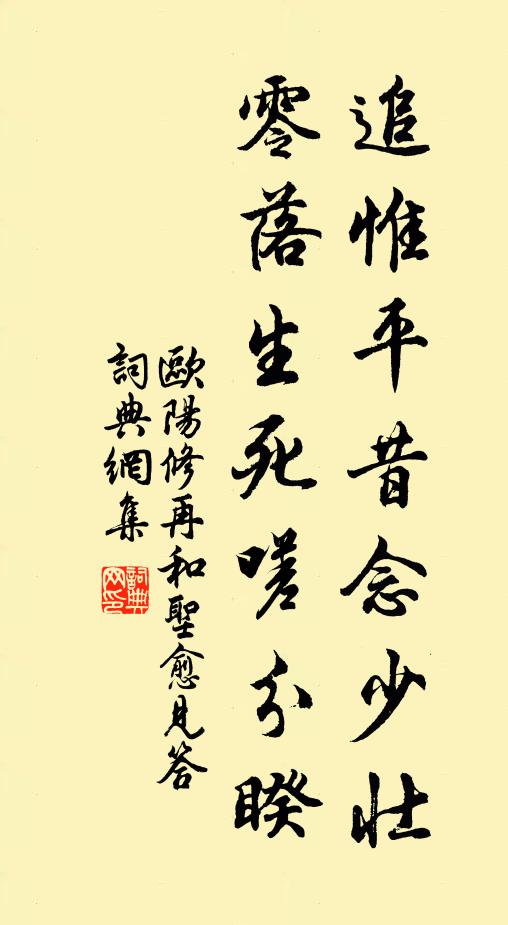 追惟平昔念少壯
零落生死嗟分睽
歐陽修再和聖愈見答
詞典網集
詞典网印